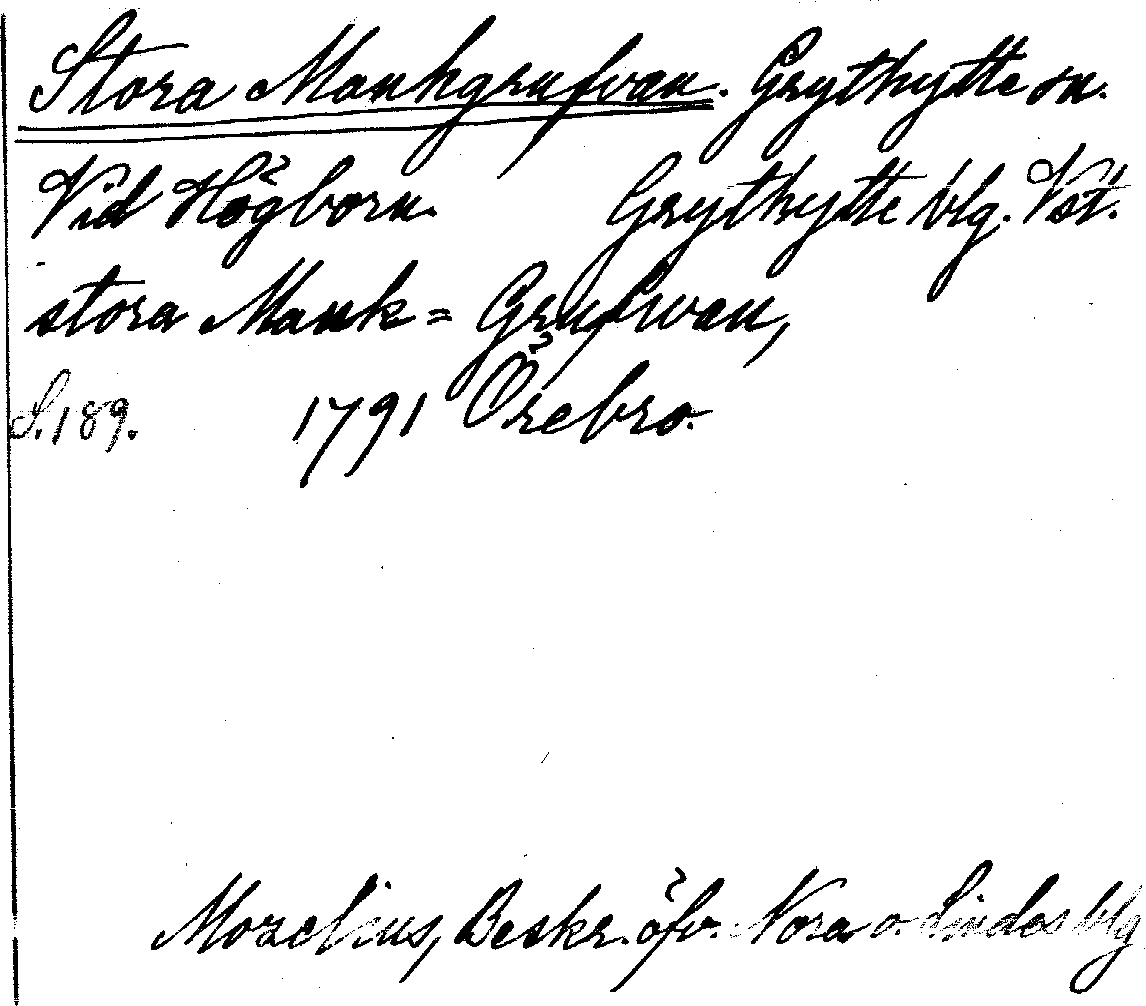 Stora Mankgrufvan. Grythytte sn.
Vid Högborn. Grythytte blg. Vst.
stora Mank = Grufwan,
S. 189. 1791 Örebro.
Mozelius, Beskr. öfv. Nora o. Lindes blg